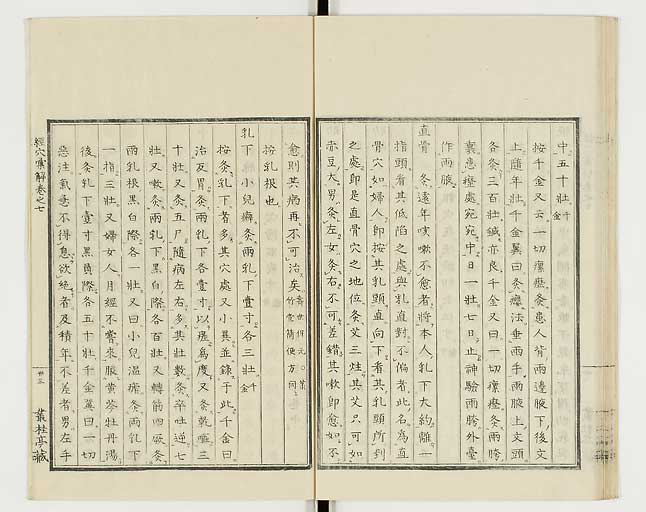 中五十壯 千金
按千金又云一切瘰癧灸患人背兩邊腋下後文
上隨年壯千金翼曰灸癭法垂兩手兩腋上文頭
各灸三百壯鍼亦良千金又曰一切瘰癧灸兩胯
裏患癧處宛宛中日一壯七日止神驗兩胯外臺
作兩腋
直骨 灸遠年咳嗽不愈者將本人乳下大約離一
指頭看其低陷之處與乳直對不偏者此名爲直
骨穴如婦人即按其乳頭直向下看其乳頭所到
之處即是直骨穴之地位灸艾三炷其艾只可如
赤豆大男灸左女灸右不可差錯其嗽即愈如不
愈則其病再不可治矣 竹堂簡便方同
按乳根也
乳下 小兒癖灸兩乳下壹寸各三壯 千金
按灸乳下者多其穴處又小異並錄于此千金曰
治反胃灸兩乳下各壹寸以瘥爲度又灸乾嘔三
十壯又灸五尸隨病左右多其壯數灸卒吐逆七
壯又嗽灸兩乳下黑白際各百壯又轉筋四厥灸
兩乳根黑白際各一壯又曰小兒溫瘧灸兩乳下
一指三壯又婦女人月經不嘗來服黃芩牡丹湯
後灸乳下壹寸黑員際各五十壯千金翼曰一切
惡注氣急不得息欲絕者及積年不差者男左手
經穴彙解卷之七
廿三
叢桂亭藏